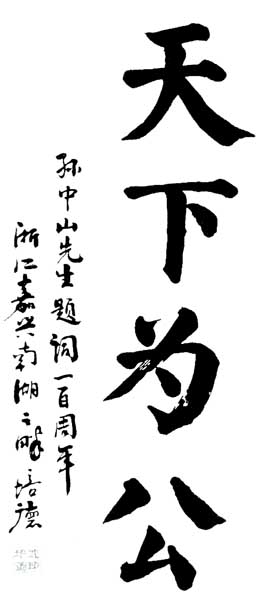 天下为公
孙中山先生题词一百周年
浙江嘉兴南湖之畔培德